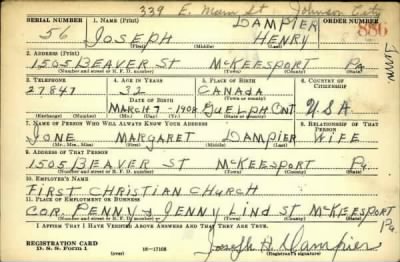 339 E. Main St Johnson City
Tenn.
SERIAL NUMBER 1. NAME (Print) ORDER NUMBER
56 JOSEPH HENRY DAMPIER 886
(First) (Middle) (Last)
2. ADDRESS (Print)
1505 BEAVER ST MCKEESPORT Pa
(Number and street or R. F. D. number) (Town) (County) (State)
3. TELEPHONE 4. AGE IN YEARS 5. PLACE OF BIRTH 6. COUNTRY OF CITIZENSHIP
27847 32 CANADA
DATE OF BIRTH (Town or county)
MARCH 7-1908 GUELPH ONT USA
(Exchange) (Number) (Mo.) (Day) (Yr.) (State or country)
7. NAME OF PERSON WHO WILL ALWAYS KNOW YOUR ADDRESS 8. RELATIONSHIP OF THAT PERSON
IONE MARGARET DAMPIER WIFE
(Mr., Mrs., Miss) (First) (Middle) (Last)
9. ADDRESS OF THAT PERSON
1505 BEAVER ST MCKEESPORT Pa.
(Number and street or R. F. D. number) (Town) (County) (State)
10. EMPLOYER'S NAME
FIRST CHRISTIAN CHURCH
11. PLACE OF EMPLOYMENT OR BUSINESS
COR. PENNY & JENNY LIND ST MCKEESPORT Pa
(Number and street or R. F. D. number) (Town) (County) (State)
I AFFIRM THAT I HAVE VERIFIED ABOVE ANSWERS AND THAT THEY ARE TRUE.
REGISTRATION CARD
D. S. S. Form 1 16-17105 Joseph H. Dampier
(Registrant's signature)